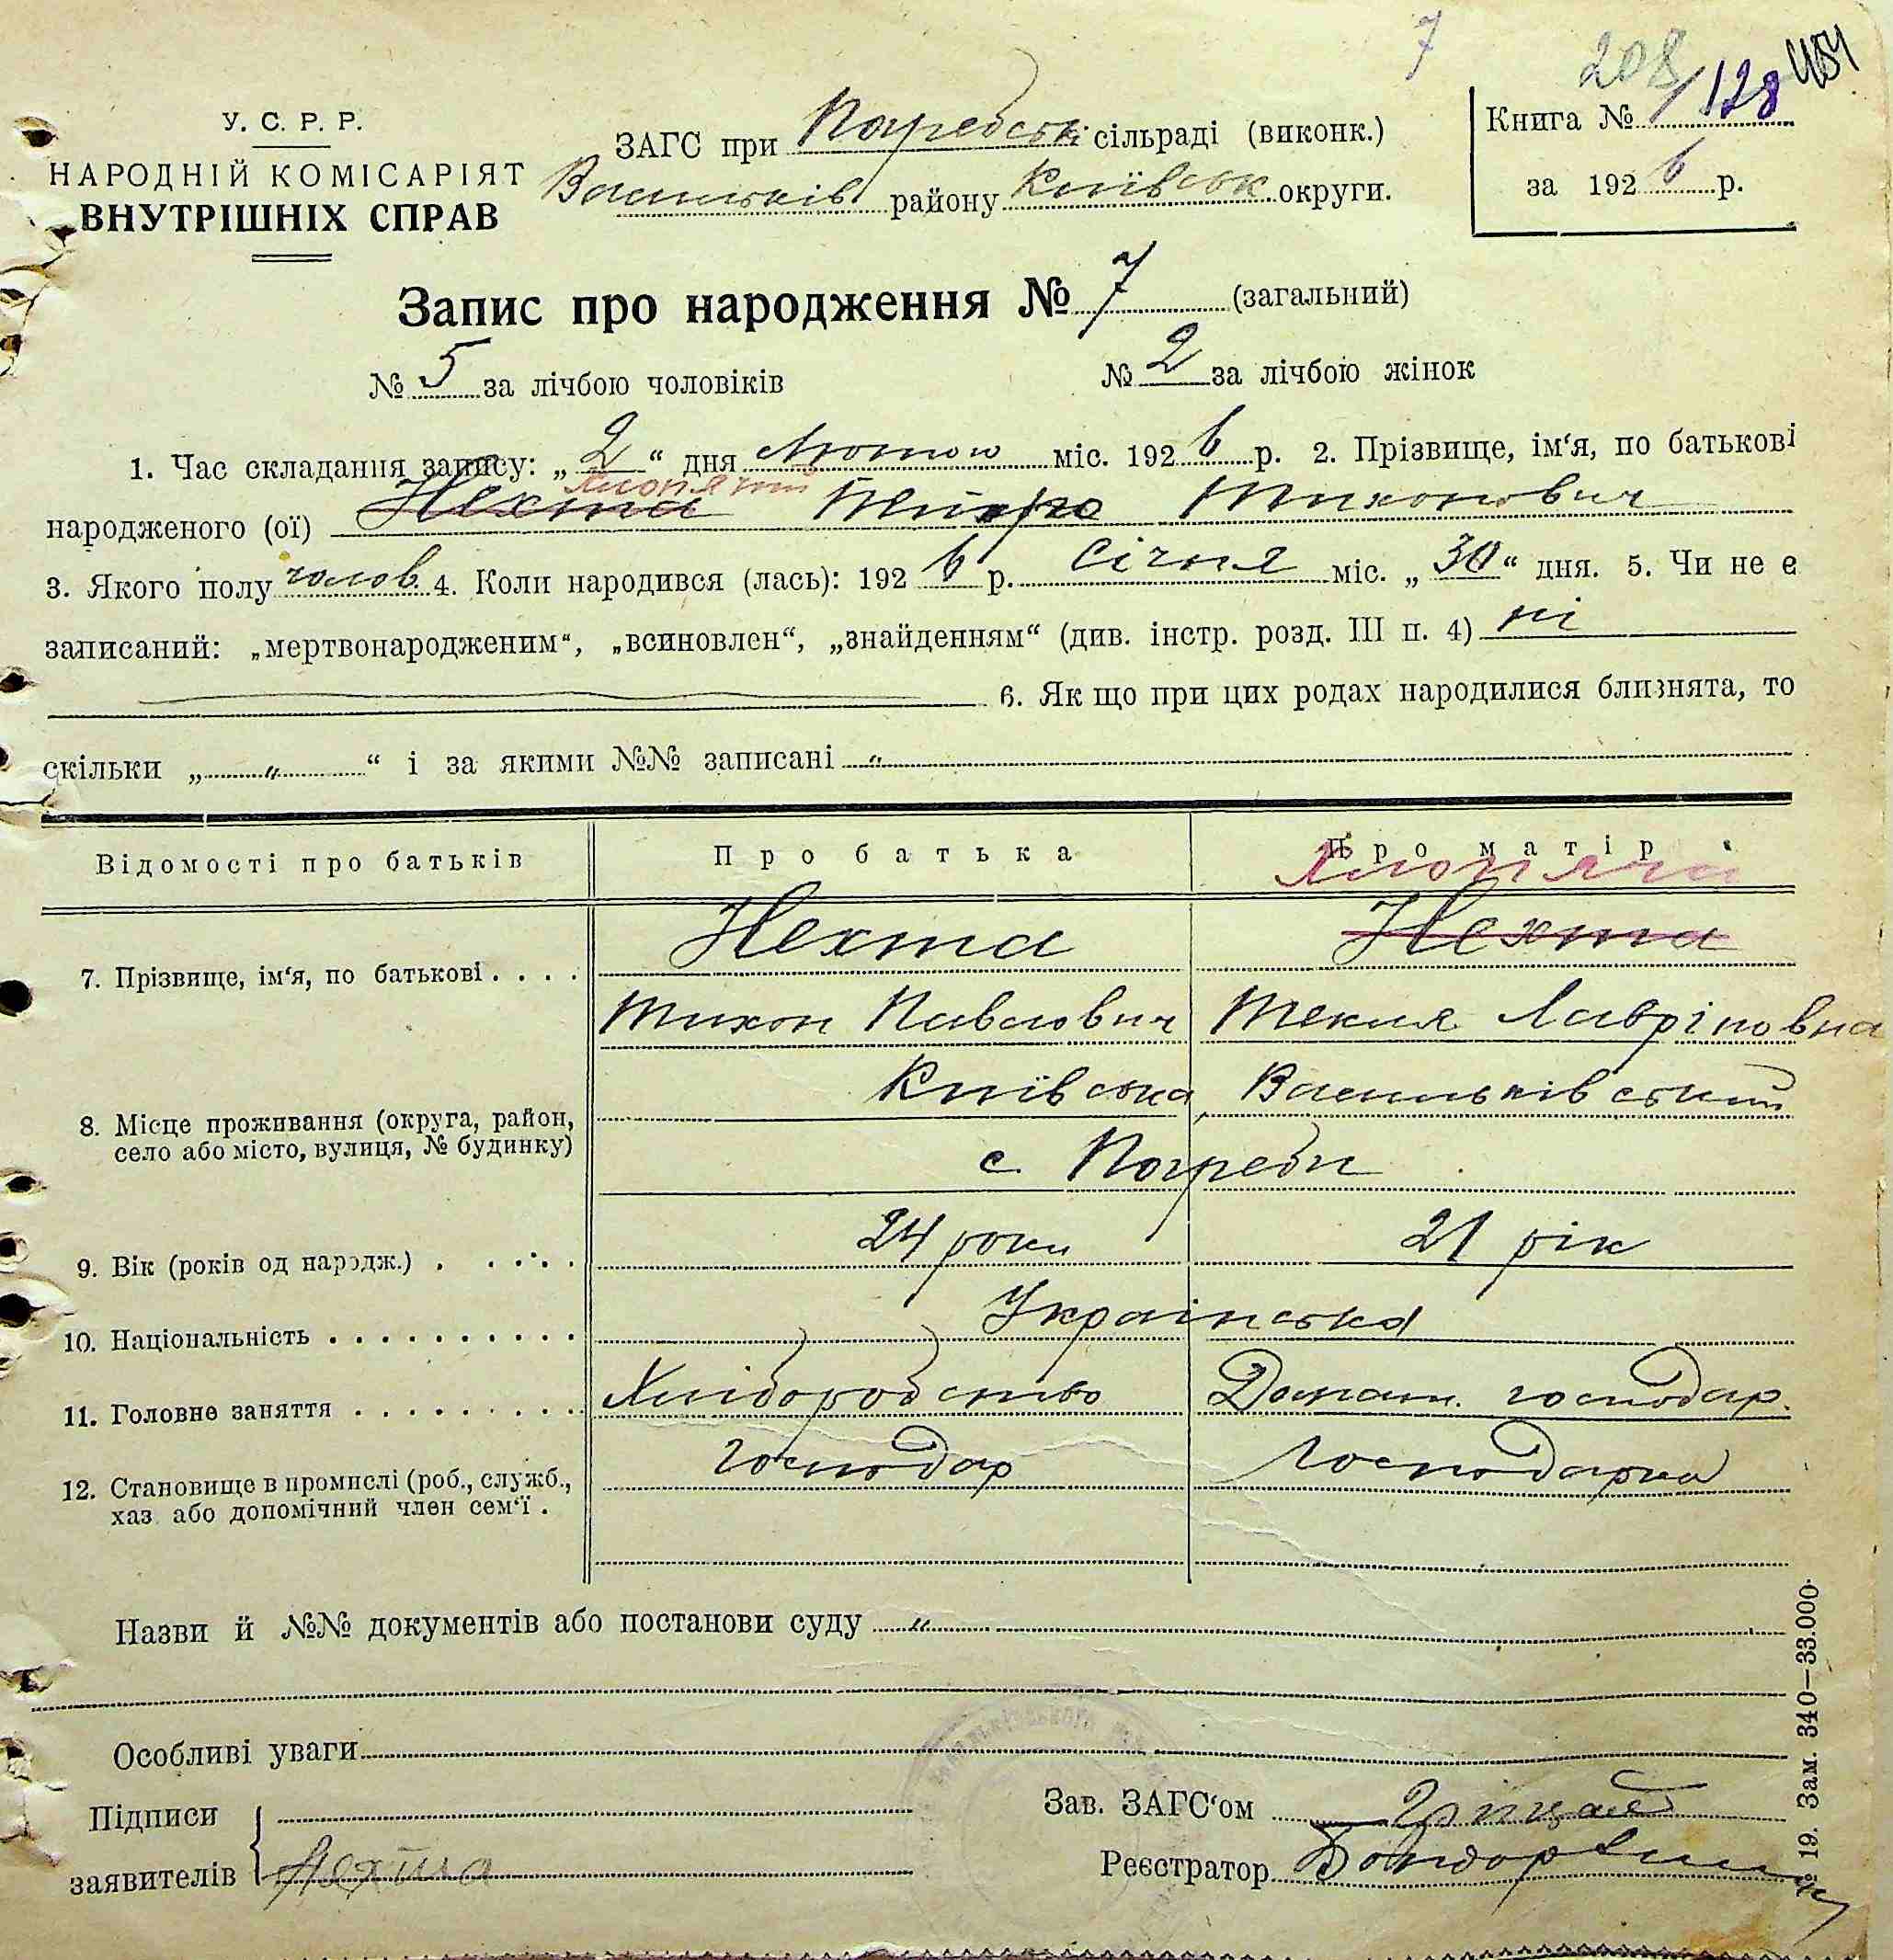 7
208/128 451
У. С. Р. Р.
НАРОДНІЙ КОМІСАРІЯТ
ВНУТРІШНІХ СПРАВ
ЗАГС при Погребськ. сільраді (виконк.)
Васильків району Київськ округи.
Книга №
за 1926 р.
Запис про народження № 7 (загальний)
№ 5 за лічбою чоловіків № 2 за лічбою жінок
1. Час складання запису: „2“ дня Лютого міс. 1926 р. 2. Прізвище, ім‘я, по батькові
народженого (ої) Нехта Тихонович
3. Якого полу чолов. 4. Коли народився (лась): 1926 р. Січня міс. „30“ дня. 5. Чи не є
записаний: „мертвонародженим“, „всиновлен“, „знайденням“ (див. інстр. розд. III п. 4) ні
6. Як що при цих родах народилися близнята, то
скільки „ „ “ і за якими №№ записані „
Відомості про батьків Про батька Про матір
Клопяча
7. Прізвище, ім‘я, по батькові . . . . Нехта Нехта
Тихон Павлович Текля Лавріновна
8. Місце проживання (округа, район, село або місто, вулиця, № будинку) Київська, Васильківський
с. Погреби
9. Вік (років од народж.) . . . . . 24 роки 21 рік
10. Національність . . . . . . . . . . Українська
11. Головне заняття . . . . . . . . . Хліборобство Домашн. господар.
12. Становище в промислі (роб., служб., хаз. або допомічний член сем‘ї . господар господарка
Назви й №№ документів або постанови суду „
Особливі уваги
Підписи
заявителів Нехта
Зав. ЗАГС‘ом
Реєстратор
№ 19. Зам. 340—33.000.